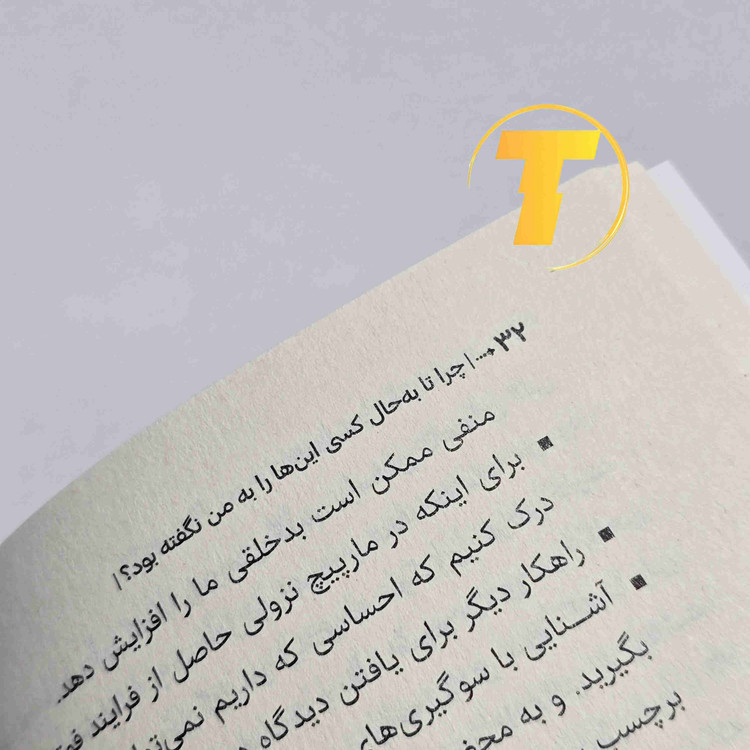 T
۳۲ | چرا تا به‌حال کسی این‌ها را به من نگفته بود؟ |
منفی ممکن است بدخلقی ما را افزایش دهد.
▪ برای اینکه در مارپیچ نزولی حاصل از فرایند
درک کنیم که احساسی که داریم
▪ راهکار دیگر برای یافتن دیدگاه
▪ آشنایی با سوگیری‌های
بگیرید. و به
برچسب